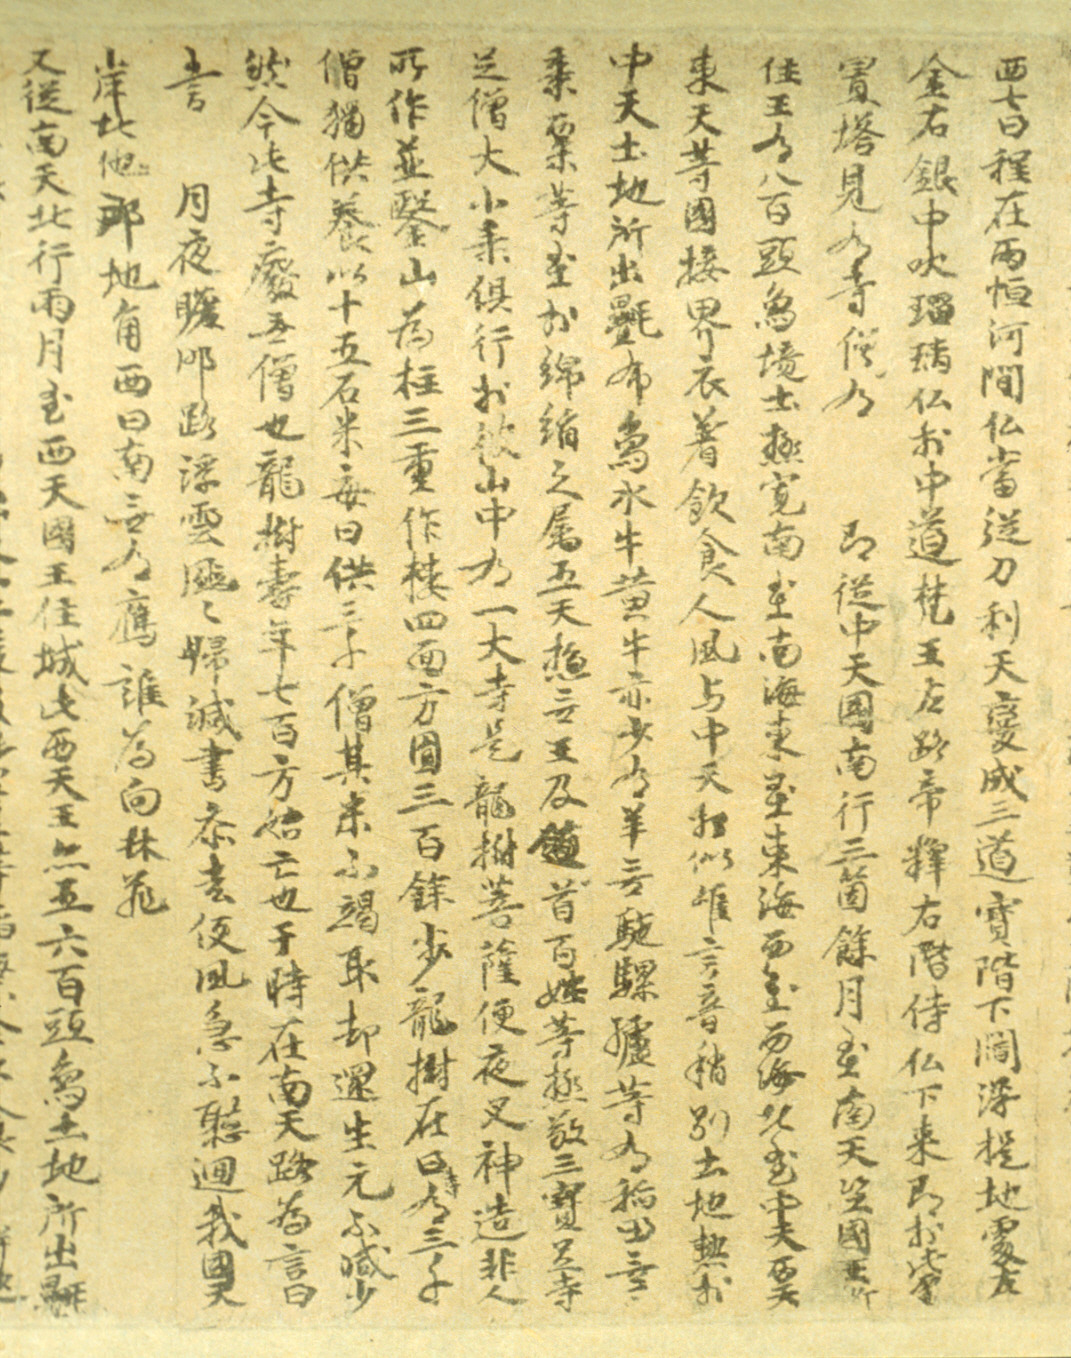 西七日程在兩恒河間仏當從刀利天變成三道寶階下閻浮提地處左
金右銀中吠瑠璃仏於中道梵王左路帝釋右階侍仏下來即於此
置塔見有寺僧有 即從中天國南行三箇餘月至南天竺國王所
住王有八百頭鳥境土極寬南至南海東至東海西至西海北至中天西天
東天等國接界衣着飲食人風与中天相似唯言音稍別土地熱於
中天土地所出㲲布鳥水牛黃牛亦少有羊無駞騾驢等有稻田無
黍粟等至於綿絹之属五天惣無王及領首百姓等極敬三寶足寺
足僧大小乘俱行於彼山中有一大寺是龍樹菩薩便夜叉神造非人
所作並鑿山為柱三重作樓四面方圓三百餘步龍樹在日寺有三千
僧獨供養以十五石米每日供三千僧其米不竭取却還生元不減少
然今此寺廢無僧也龍樹壽年七百方始亡也于時在南天路為言曰
言 月夜瞻郷路浮雲颯〻歸減書忝去便風急不聽廻我國天
岸北他邦地角西日南無有鴈誰為向林飛
又從南天北行兩月至西天國王住城此西天王亦五六百頭鳥土地所出㲲